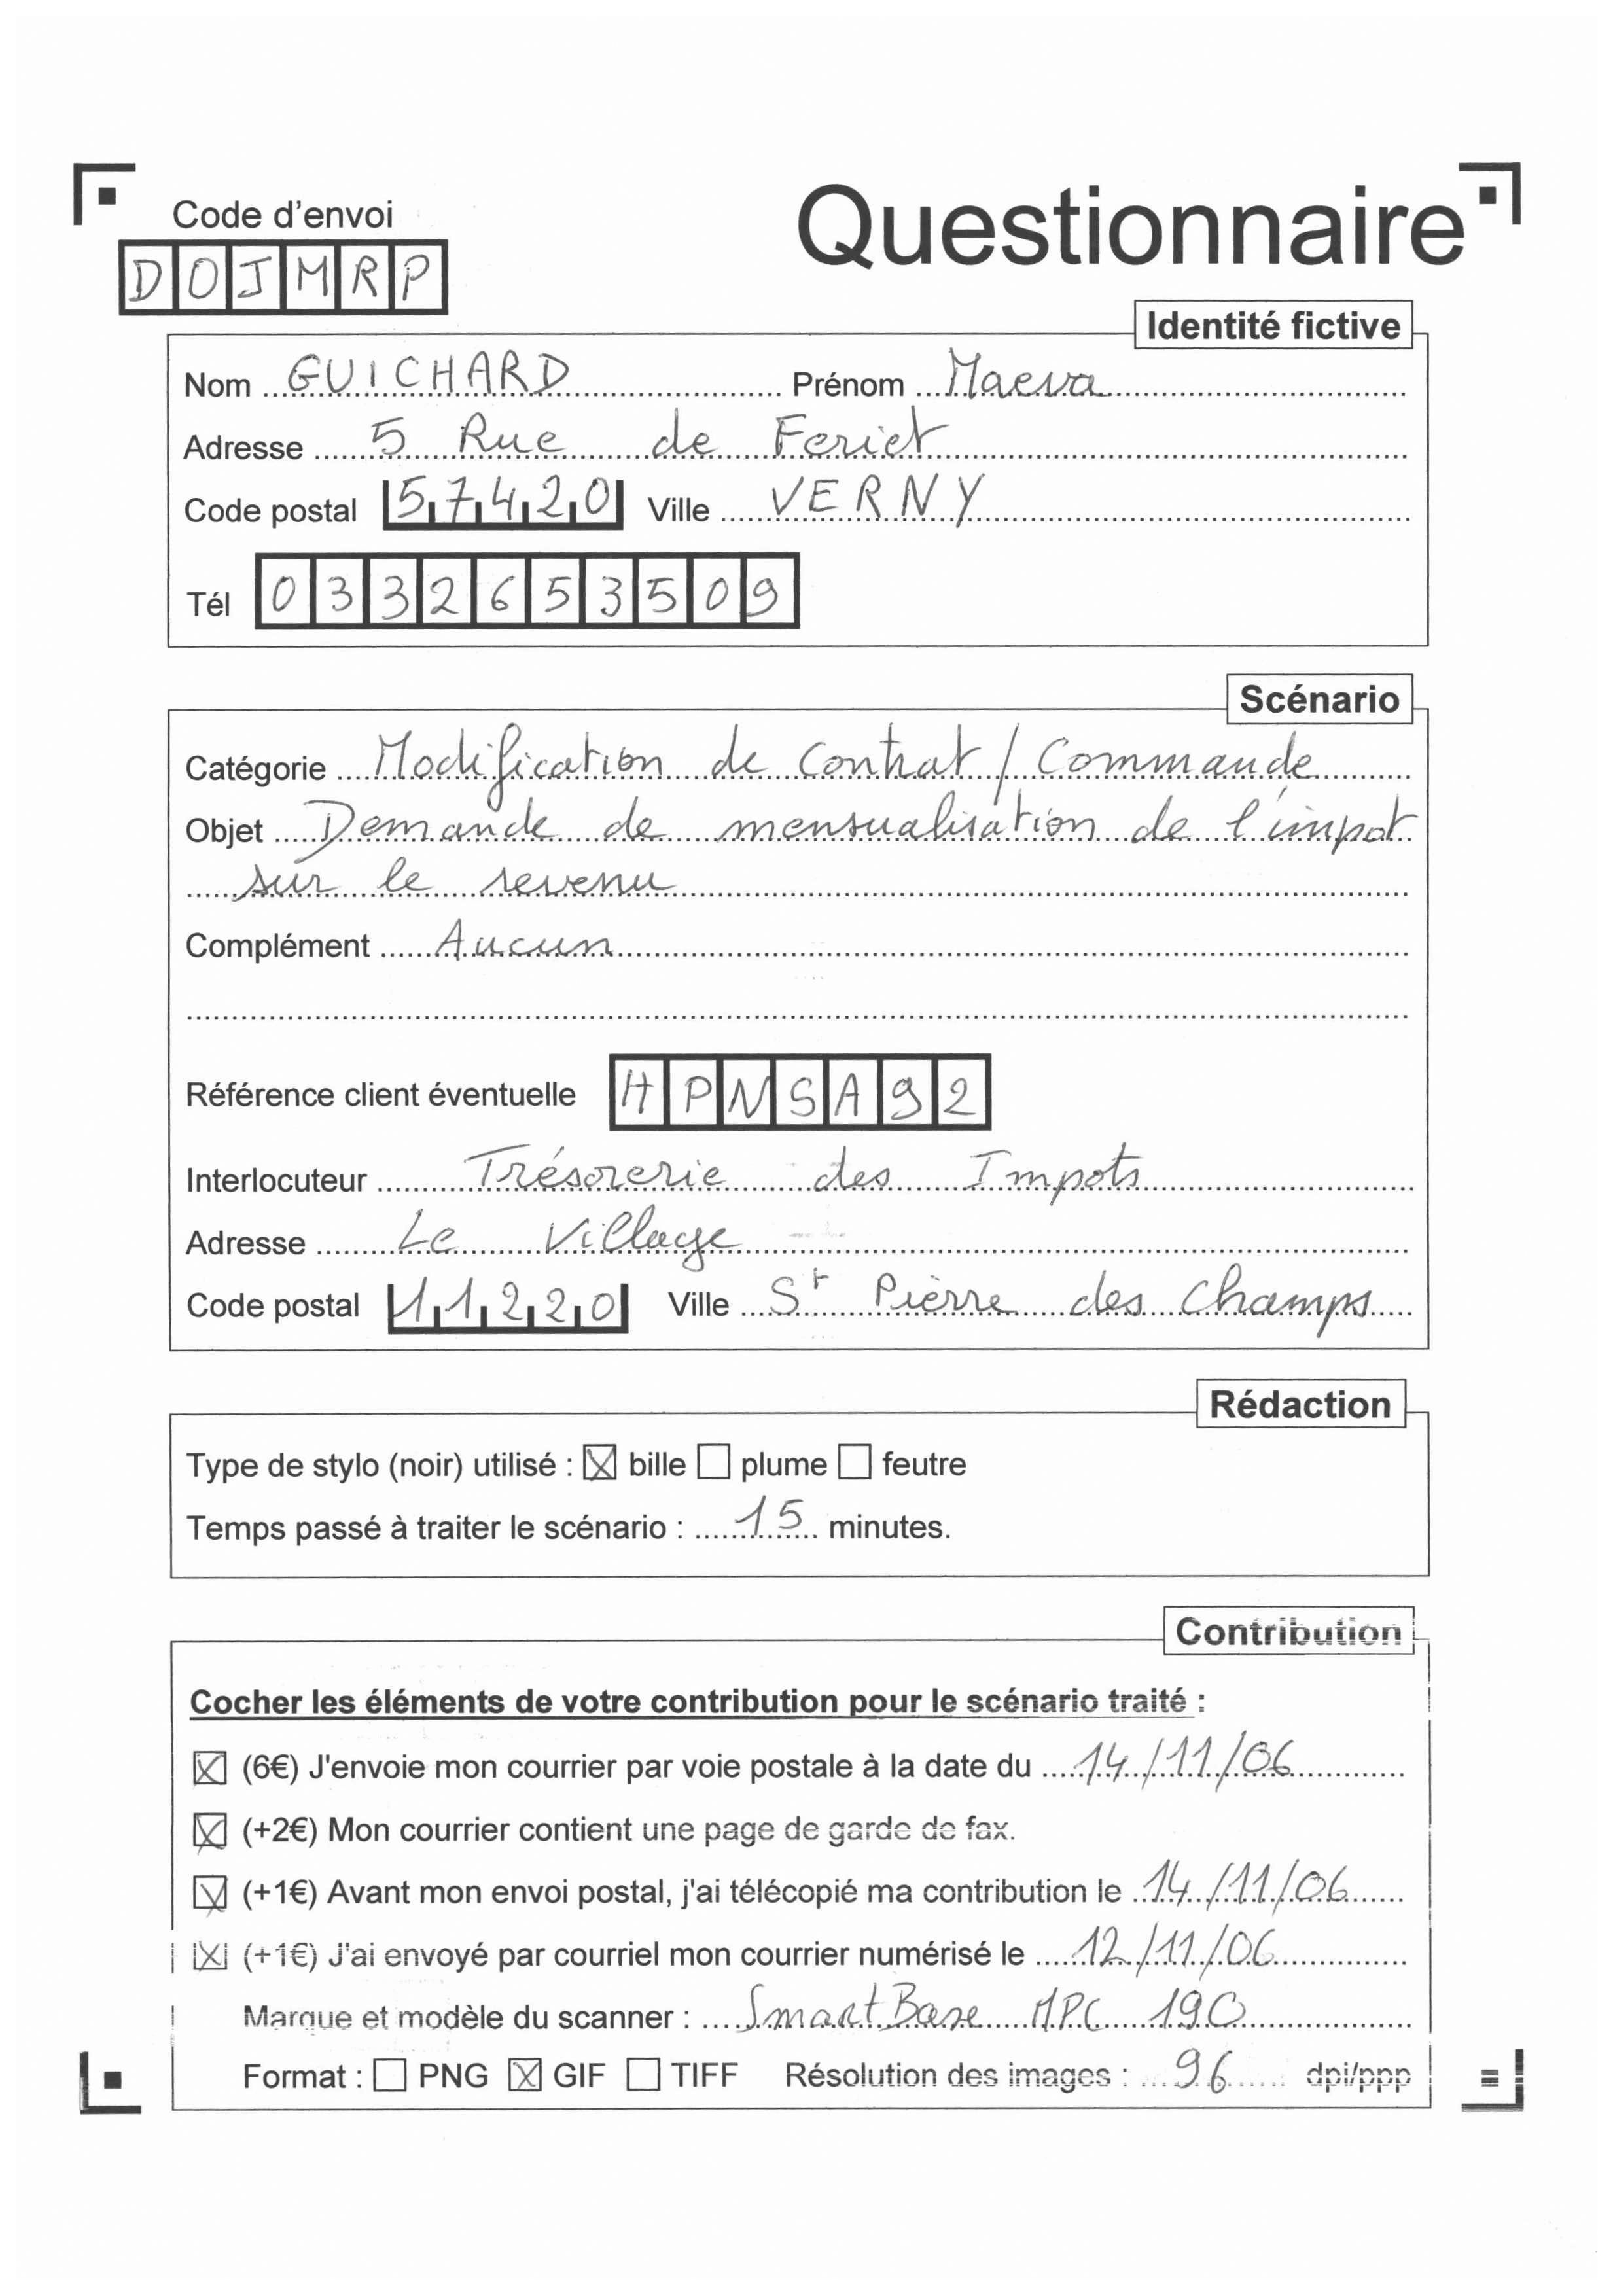 Code d'envoi
Questionnaire
DOJMRP
Identité fictive
Nom GUICHARD Prénom Maeva
Adresse 5 Rue de Feriet
Code postal 57420 Ville VERNY
Tél 0332653509
Scénario
Catégorie Modification de contrat / Commande
Objet Demande de mensualisation de l'impot
sur le revenu
Complément Aucun
Référence client éventuelle HPNSA92
Interlocuteur Trésorerie des Impots
Adresse Le Village
Code postal 11220 Ville St Pierre des Champs
Rédaction
Type de stylo (noir) utilisé : ☒ bille ☐ plume ☐ feutre
Temps passé à traiter le scénario : 15 minutes.
Contribution
Cocher les éléments de votre contribution pour le scénario traité :
☒ (6€) J'envoie mon courrier par voie postale à la date du 14/11/06
☒ (+2€) Mon courrier contient une page de garde de fax.
☒ (+1€) Avant mon envoi postal, j'ai télécopié ma contribution le 14/11/06
☒ (+1€) J'ai envoyé par courriel mon courrier numérisé le 12/11/06
Marque et modèle du scanner : SmartBase MPC 190
Format : ☐ PNG ☒ GIF ☐ TIFF Résolution des images : 96 dpi/ppp